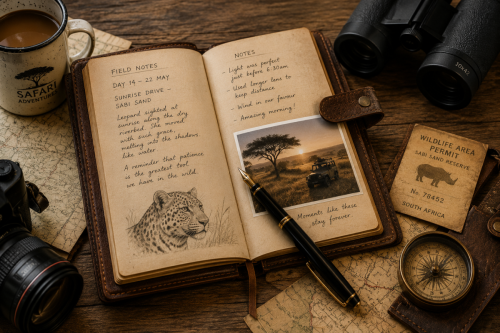 SAFARI
ADVENTURE
FIELD NOTES
DAY 14 – 22 MAY
SUNRISE DRIVE –
SABI SAND
Leopard sighted at
sunrise along the dry
riverbed. She moved
with such grace,
melting into the shadows
like water.
A reminder that patience
is the greatest tool
we have in the wild.
NOTES
- Light was perfect
just before 6:30am
- Used longer lens to
keep distance.
- Wind in our favour
- Amazing morning!
Moments like these
stay forever.
WILDLIFE AREA
PERMIT
SABI SAND RESERVE
No. 78452
SOUTH AFRICA